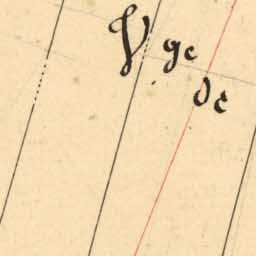 Vge
de